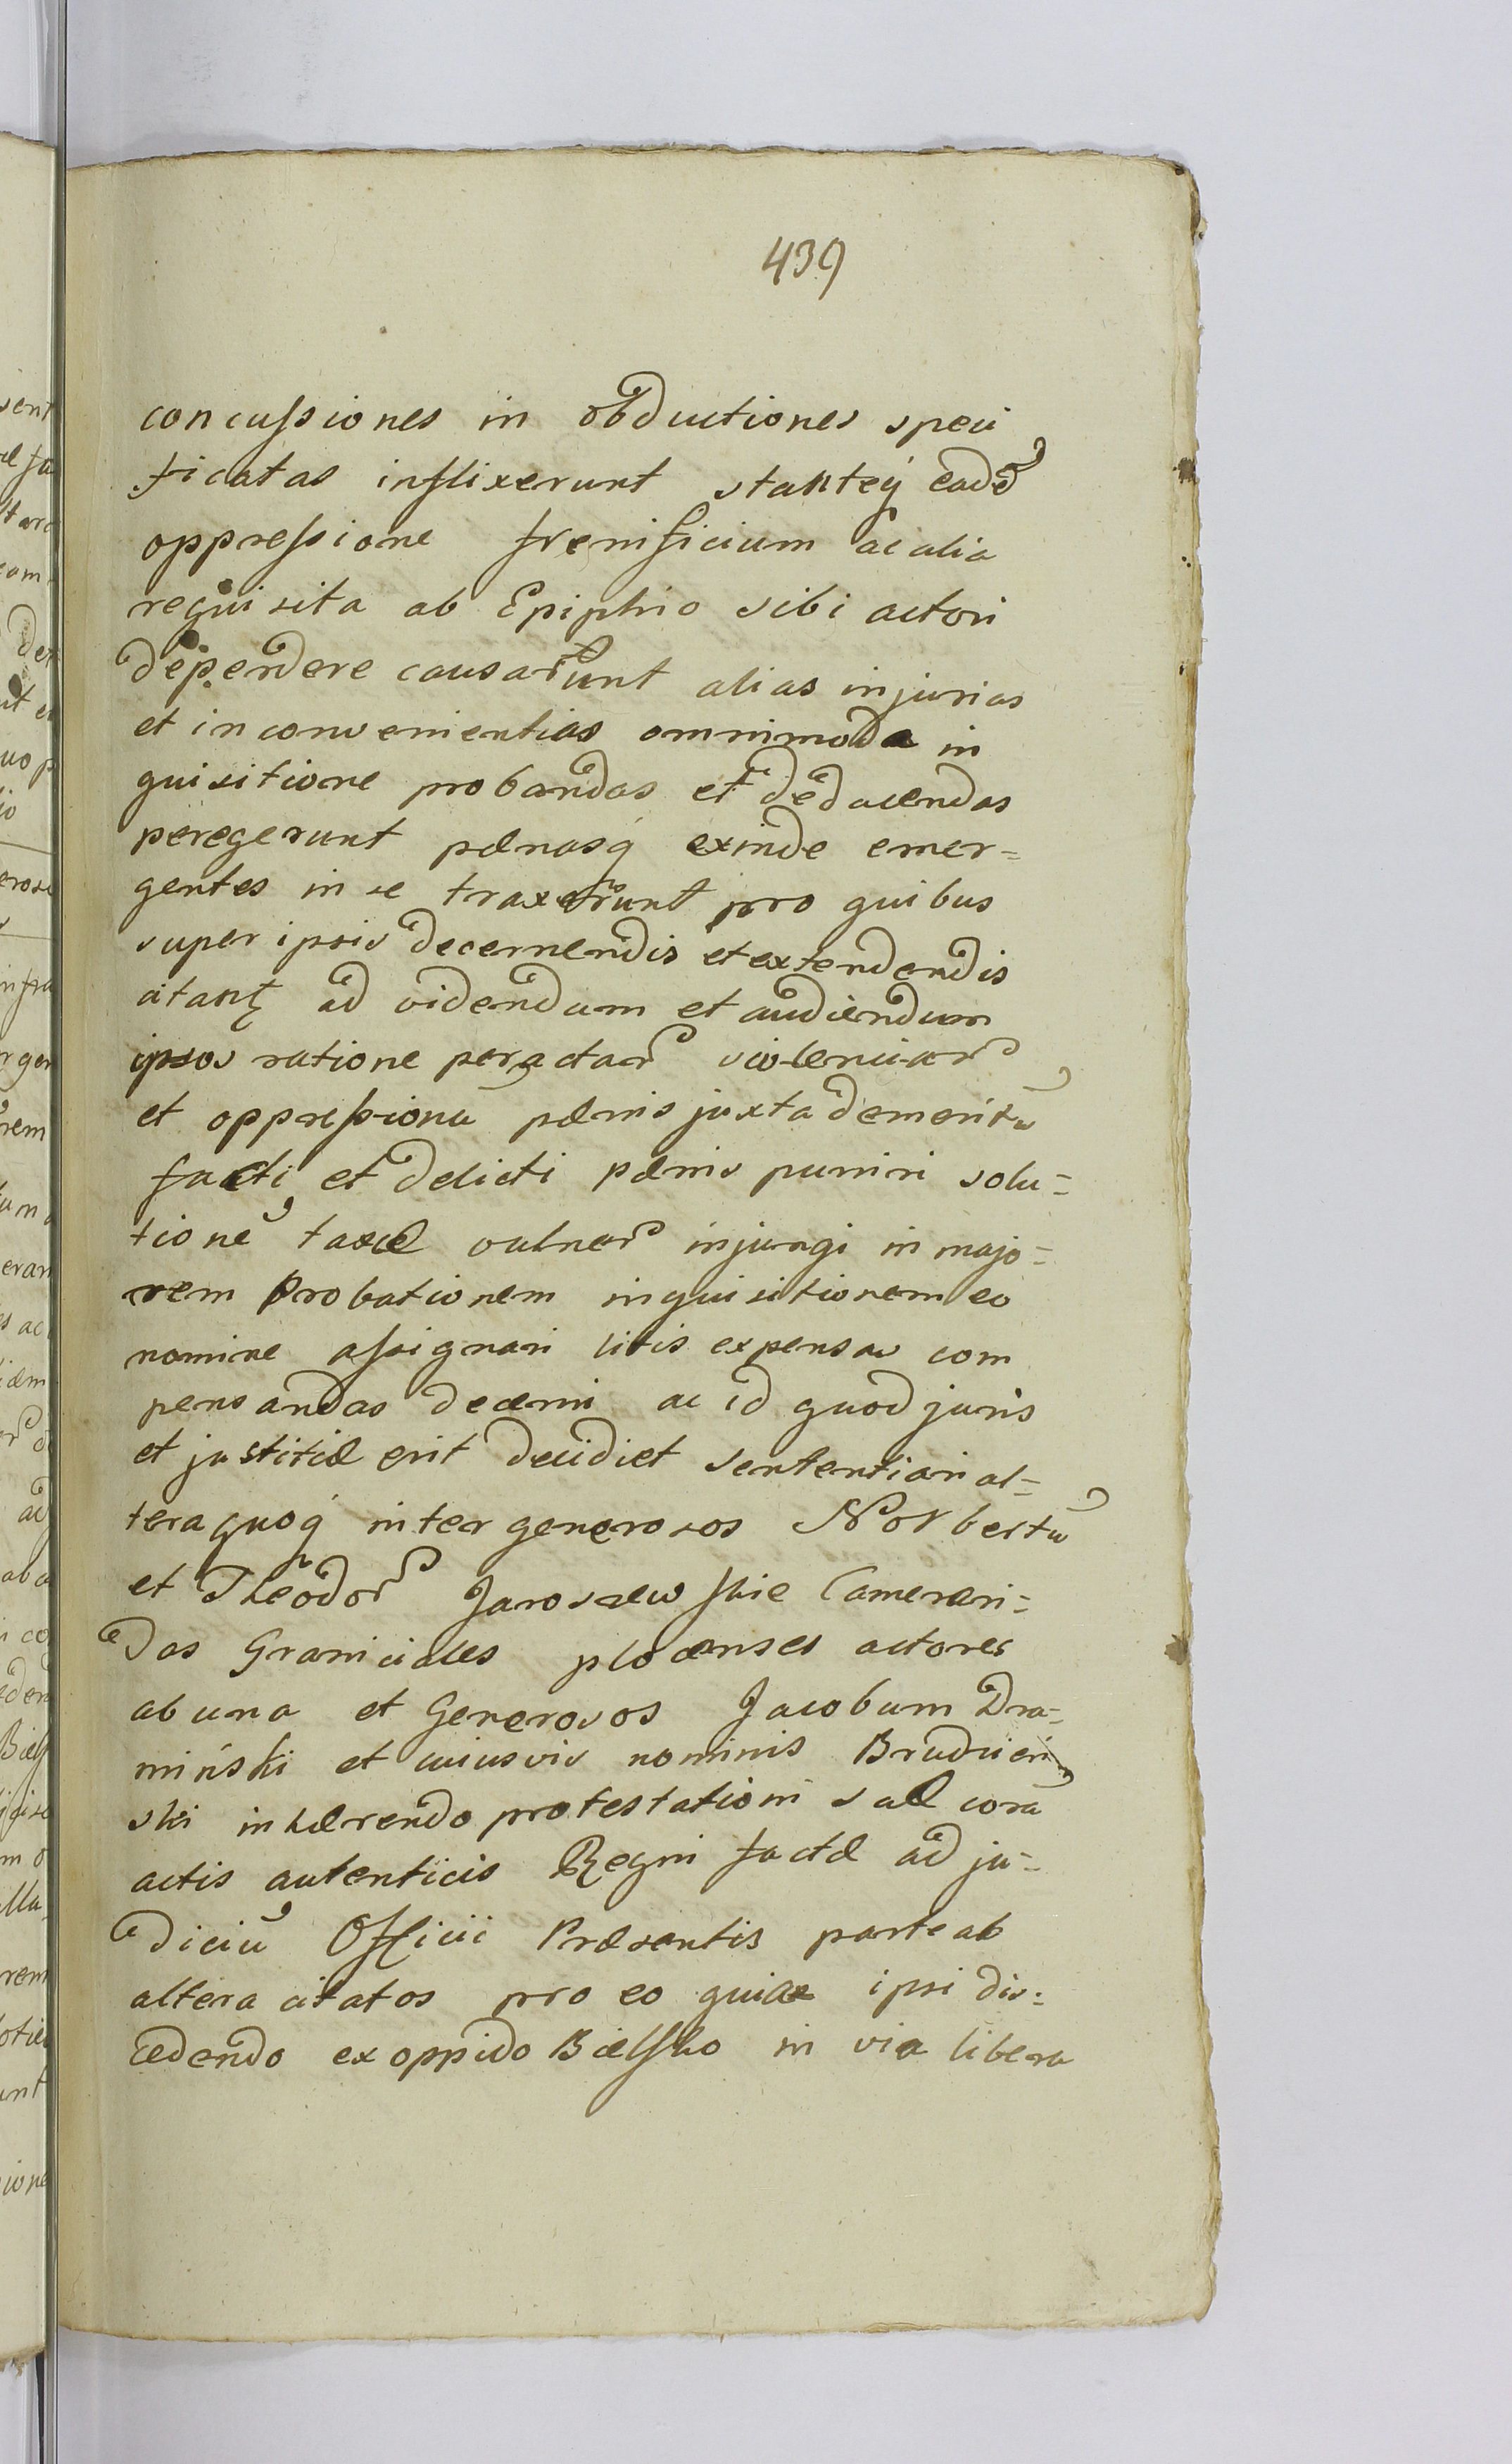 439
concussiones in obductiones speci
ficatas inflixerunt stanteq́ eadē
oppressione frenificium ac alia
requisita ab Epiphio sibi actori
dependere causarunt alias injurias
et inconvenientias omnimoda in
quisitione probandas et deducendas
peregerunt pænasq́ exinde emer=
gentes in se traxerunt pro quibus
super ipsis decernendis et extendendis
citant ad videndum et audiendum
ipsos ratione peractar violenciar
et oppressionū pænis juxta demeritū
facti et delicti pænis puniri solu=
tionē taxæ vulner injungi in majo=
rem Probationem inquisitionem eo
nomine assignari litis expensas com
pensandas decerni ac id quod juris
et justitiæ erit decidi et sententiari al=
tera quoq́ inter generosos Norbertū
et Theodor Jaroszewskie Camerari=
das Graniciales plocenses actores
ab una et Generosos Jacobum Dra=
miński et cuiusvis nominis Brudzień
ski inhærendo protestationi suæ corā
actis autenticis Regni factæ ad ju=
diciū Officii Præsentis parte ab
altera citatos pro eo quia ipsi dis=
cedendo ex oppido Bielsko in via libera